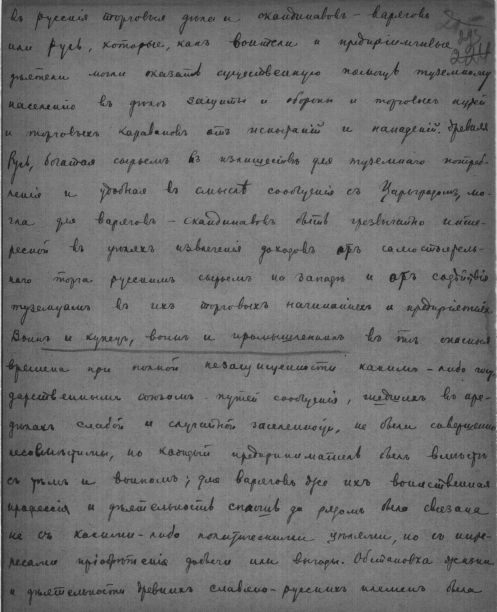 въ русскія торговыя дѣла и скандинавовъ-варяговъ
или Русь, которые, какъ воители и предпріимчивые
дѣятели могли оказать существенную помощь туземному
населенію въ дѣлѣ защиты и обороны и торговыхъ путей
и торговыхъ каравановъ отъ нападеній. Древняя
Русь, богатая сырьемъ въ излишествѣ для туземнаго потреб-
ленія и удобная въ смыслѣ сообщенія съ Царьградомъ, мо-
гла для варяговъ-скандинавовъ быть чрезвычайно инте-
ресной въ цѣляхъ извлеченія доходовъ отъ самостоятель-
наго торга русскимъ сырьемъ на западѣ и отъ содѣйствія
туземцамъ въ ихъ торговыхъ начинаніяхъ и предпріятіяхъ.
Воинъ и купецъ, воинъ и промышленникъ въ тѣ опасныя
времена при полной незащищенности какимъ-либо госу-
дарственнымъ союзомъ путей сообщенія, шедшихъ въ пре-
дѣлахъ слабой и случайной заселенности, не были совершенно
несовмѣстимы, но каждый предприниматель былъ вмѣстѣ
съ тѣмъ и воиномъ; для варяговъ же ихъ воинственная
профессія и дѣятельность сплошь да рядомъ была связана
не съ какими-либо политическими цѣлями, но съ инте-
ресами пріобрѣтенія добычи или выгоды. Обстановка жизни
и дѣятельности древнихъ славяно-русскихъ племенъ была